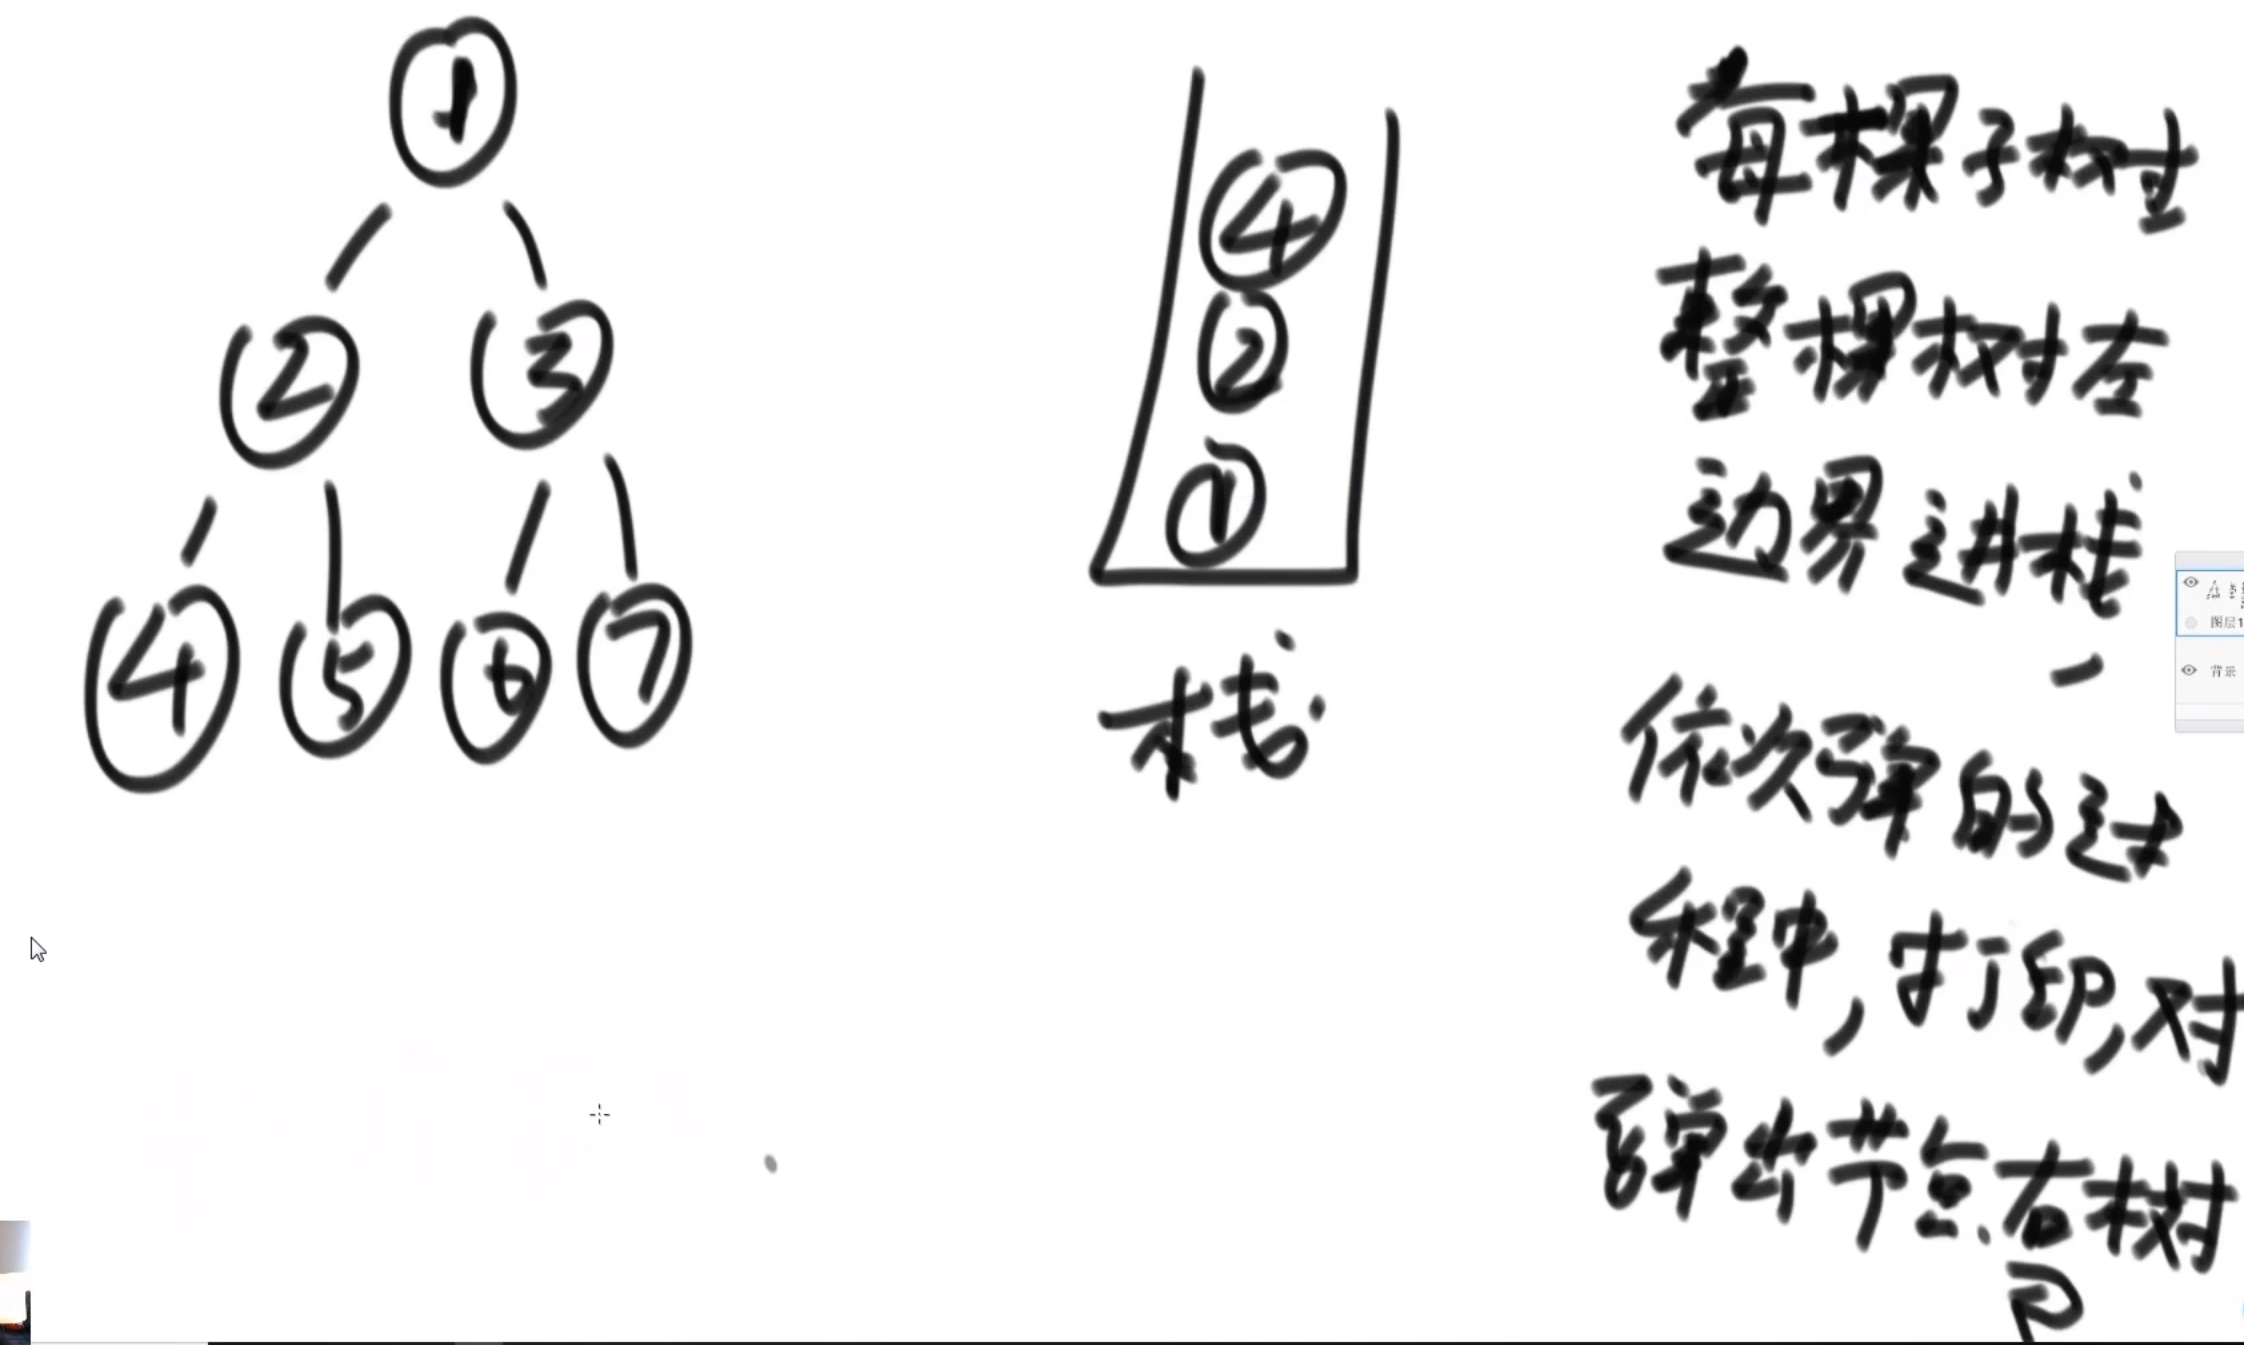 1
2 3
4 5 6 7
4
2
1
栈
每棵子树
整棵树左
边界进栈,
依次弹的过
程中,打印,对
弹出节点右树
图层1
背景